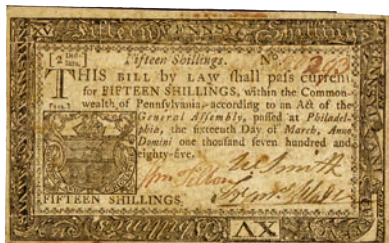 Fifteen PENNSYL Shillings
[2 Dol-
lars.] Fifteen Shillings. No.
THIS BILL by LAW shall pass current
for FIFTEEN SHILLINGS, within the Common-
wealth of Pennsylvania, according to an Act of the
General Assembly, passed at Philadel-
phia, the sixteenth Day of March, Anno
Domini one thousand seven hundred and
eighty-five.
Smith
FIFTEEN SHILLINGS.
XV